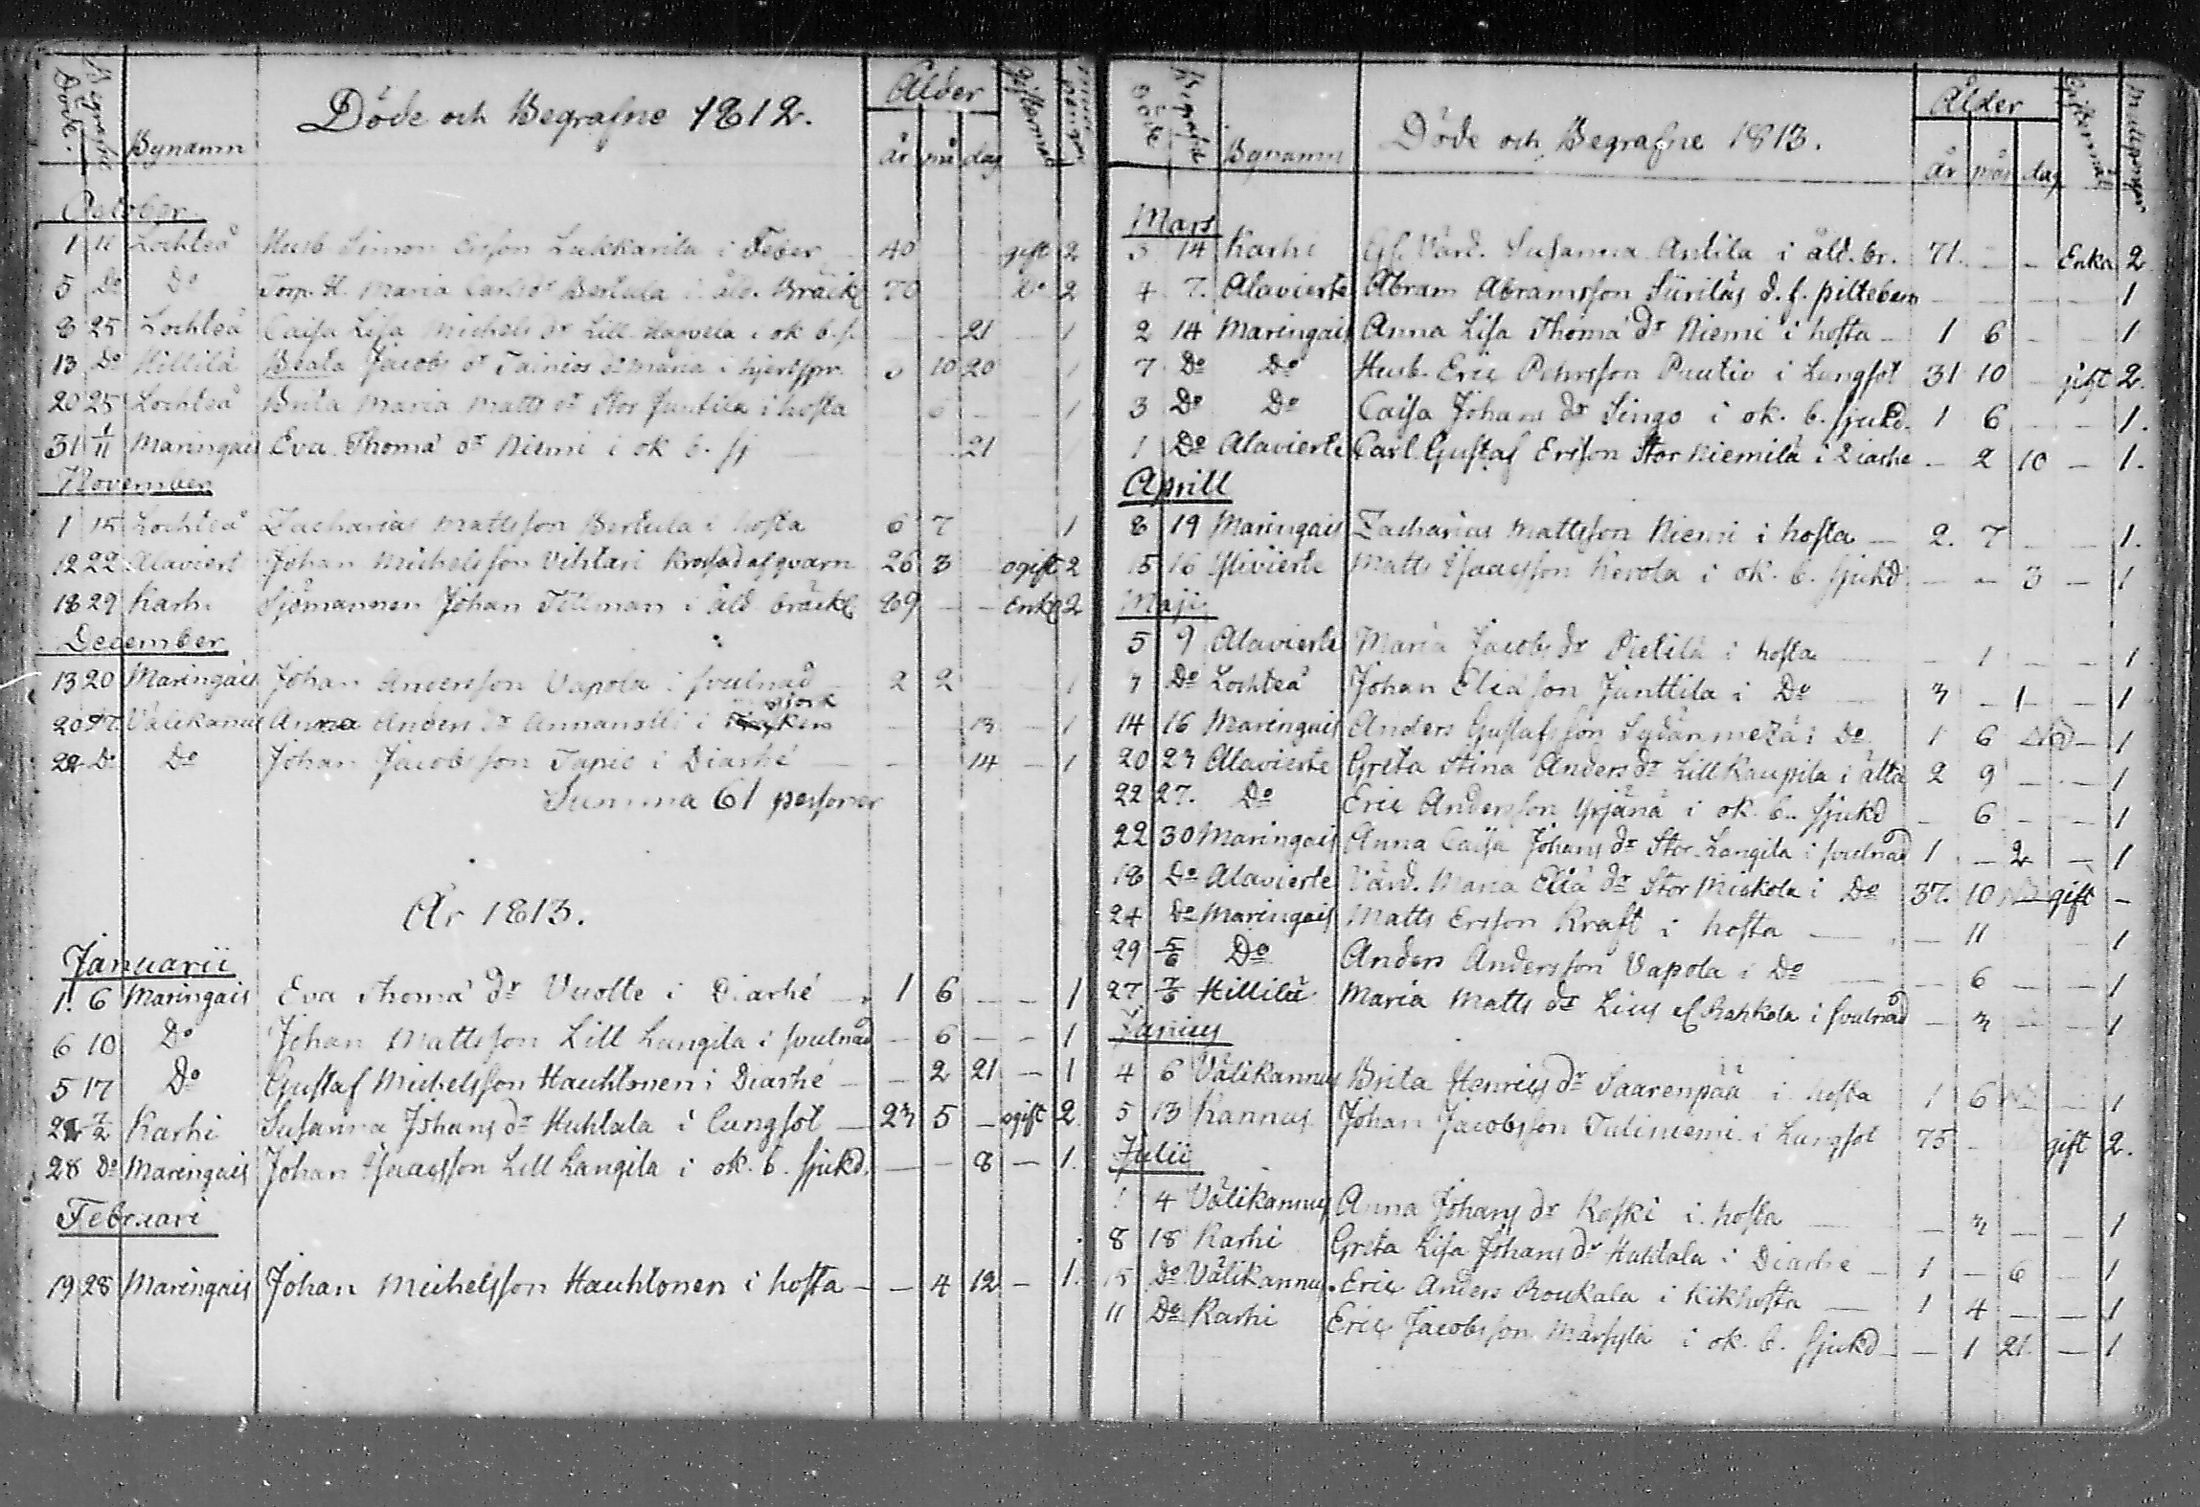 Döde och Begrafne 1812.
Döde. Begrafne Bynamn Ålder år må dag Giftermål
October
1 11 Lochteå Husb Simon Ersson Lukkarila i Feber 40 gift 2
5 Do Do Torp. H. Maria Carls dr Bertula i åld. Bräckl 70 Do 2
8 25 Lochteå Caisa Lisa Michels dr Lill i ok b. s. 21 1
13 Do Hillilä Beata Jacobs dr Tainios dr Maria i 10 20 1
20 25 Lochteå Brita Maria Matts dr Stor Juntila i hosta 6 1
31 1/11 Maringais Eva Thoma dr Niemi i ok b. sj 21
November
1 15 Lochteå Zacharias Mattsson Bertula i hosta 6 7 1
12 22 Alaviert Johan Michelsson Vihtari Krossad af qvarn 26 3 ogift 2
18 29 Karhi Sjömannen Johan Tillman i åld bräckl 89 Enkl 2
December
13 20 Maringais Johan Andersson Vapola i svulnad 2 2 1
20 27. Välikannus Anna Anders dr Annanolli i 13 1
22 Do Do Johan Jacobsson Tapio i Diarhé 14 1
Summa 61 personer
År 1813.
Januarii
1. 6 Maringais Eva Thoma dr Vuolle i Diarhé 1 6 — — 1
6 10 Do Johan Mattsson Lill Langila i svulnad — 6 — — 1
5 17 Do Gustaf Michelsson Hauhtonen i Diarhé — 2 21 — 1
7/2 Karhi Susanna Johans dr Huhtala i Lungsot 23 5 — ogift 2
28 Do Maringais Johan Isaacsson Lill Langila i ok. b. sjukd. — — 8 — 1.
Februari
19 28 Maringais Johan Michelsson Hauhtonen i hosta — — 4 12 — 1.
Döde och Begrafne 1813.
Döde Begrafne Bynamn Ålder år mån dag Giftermål
Mars
3 14 Karhi Gf. Värd. Susanna Antila i åld. br. 71. — — Enka 2
4 7. Alavierte Abram Abramsson Siirilas d. f. piltebarn — — — — 1
2 14 Maringais Anna Lisa Thoma dr Niemi i hosta — 1 6 — — 1
7 Do Do Husb. Eric Pehrsson Pautio i Lungsot 31 10 — gift 2.
3 Do Do Caisa Johans dr Singo i ok. b. sjukd. 1 6 — — 1.
1 Do Alavierte Carl Gustaf Ersson Stor Niemilä i Diarhe — 2 10 — 1.
Aprill
8 19 Maringais Zacharias Mattsson Niemi i hosta — 2. 7 — — 1.
15 16 Ylivierte Matts Isaacsson Kerola i ok. b. sjukd. — — 3 — 1
Maji
5 9 Alavierte Maria Jacobs dr Pietilä i hosta — 1 — — 1
7 Do Lochteå Johan Eliasson Junttila i Do — 3 — 1 — 1
14 16 Maringais Anders Gustafsson Sydänmezä i Do 1 6 — 1
20 23 Alavierte Greta Stina Anders dr Lill Kaupila i älta 2 9 — — 1
22 27. Do Eric Andersson Yrjänä i ok. b. sjukd — 6 — — 1
22 30 Maringais Anna Caisa Johans dr Stor Langila i svulnad 1 — 2 — 1
18 Do Alavierte Värd. Maria Elia dr Stor Miskola i Do 37. 10 gift —
24 Do Maringais Matts Ersson Kraft i hosta — — 11 1
29 5/6 Do Anders Andersson Vapola i Do — 6 — — 1
27 7/6 Hillilä Maria Matts dr Lius i svulnad — 3 — — 1
Junius
4 6 Välikannus Brita Henrics dr Saarenpää i hosta 1 6 — 1
5 13 Kannus Johan Jacobsson Tuliniemi i Lungsot 75 — gift 2.
Julii
1 4 Välikannus Anna Johans dr Koski i hosta — — 3 — — 1
8 18 Karhi Greta Lisa Johans dr Huhtala i Diarhe — 1 — 6 — 1
15 Do Välikannus. Eric Anders Roukala i Kikhosta — 1 4 — — 1
11 Do Karhi Eric Jacobsson Märsylä i ok. b. sjukd — — 1 21. — 1